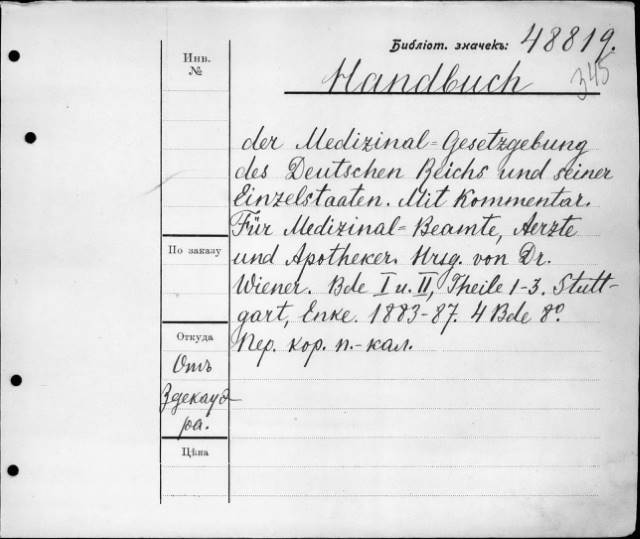 Библіот. значекъ: 48819.
345
Инв.
№
Handbuch
der Medizinal=Gesetzgebung
des Deutschen Reichs und seiner
Einzelstaaten. Mit Kommentar.
Für Medizinal=Beamte, Aerzte
und Apotheker. Hrsg. von Dr.
Wiener. Bde I u. II, Theile 1-3. Stutt-
gart, Enke. 1883-87. 4 Bde 8º.
Пер. кор. п.-кал.
По заказу
Откуда
Отъ
Здекауэ-
ра.
Цѣна